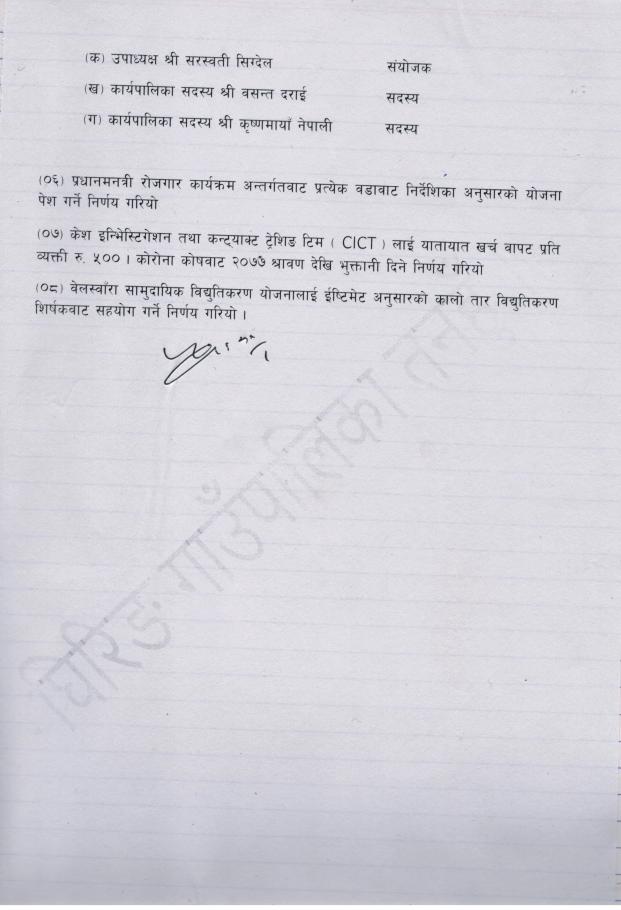 (क) उपाध्यक्ष श्री सरस्वती सिग्देल संयोजक
(ख) कार्यपालिका सदस्य श्री वसन्त दराई सदस्य
(ग) कार्यपालिका सदस्य श्री कृष्णमायाँ नेपाली सदस्य
(०६) प्रधानमनत्री रोजगार कार्यक्रम अन्तर्गतवाट प्रत्येक वडावाट निर्देशिका अनुसारको योजना
पेश गर्ने निर्णय गरियो
(०७) केश इन्भिेस्टिगेशन तथा कन्ट्याक्ट ट्रेशिङ टिम ( CICT ) लाई यातायात खर्च वापट प्रति
व्यक्ती रु. ५०० । कोरोना कोषवाट २०७७ श्रावण देखि भुक्तानी दिने निर्णय गरियो
(०८) वेलस्वाँरा सामुदायिक विद्युतिकरण योजनालाई ईष्टिमेट अनुसारको कालो तार विद्युतिकरण
शिर्षकवाट सहयोग गर्ने निर्णय गरियो ।
घिरिङ गाउँपालिका